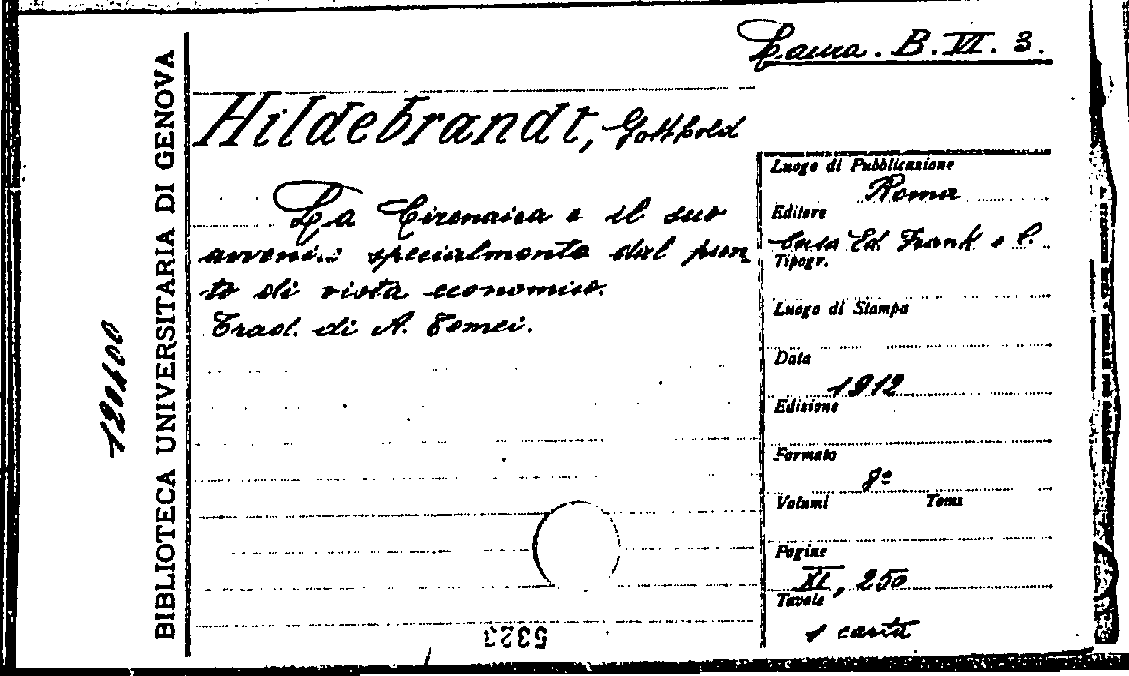 Laura. B. VI. 3.
Hildebrandt, Gotthold
La Cirenaica e il suo
avvenire specialmente dal pun
to di vista economico.
Trad. di A. Tomei.
Luogo di Pubblicazione
Roma
Editore
Casa Ed. Frank e C.
Tipogr.
Luogo di Stampa
Data
1912
Edizione
Formato
8º
Volumi Tomi
Pagine
XI, 250
Tavole
1 carta
BIBLIOTECA UNIVERSITARIA DI GENOVA
120400
5323